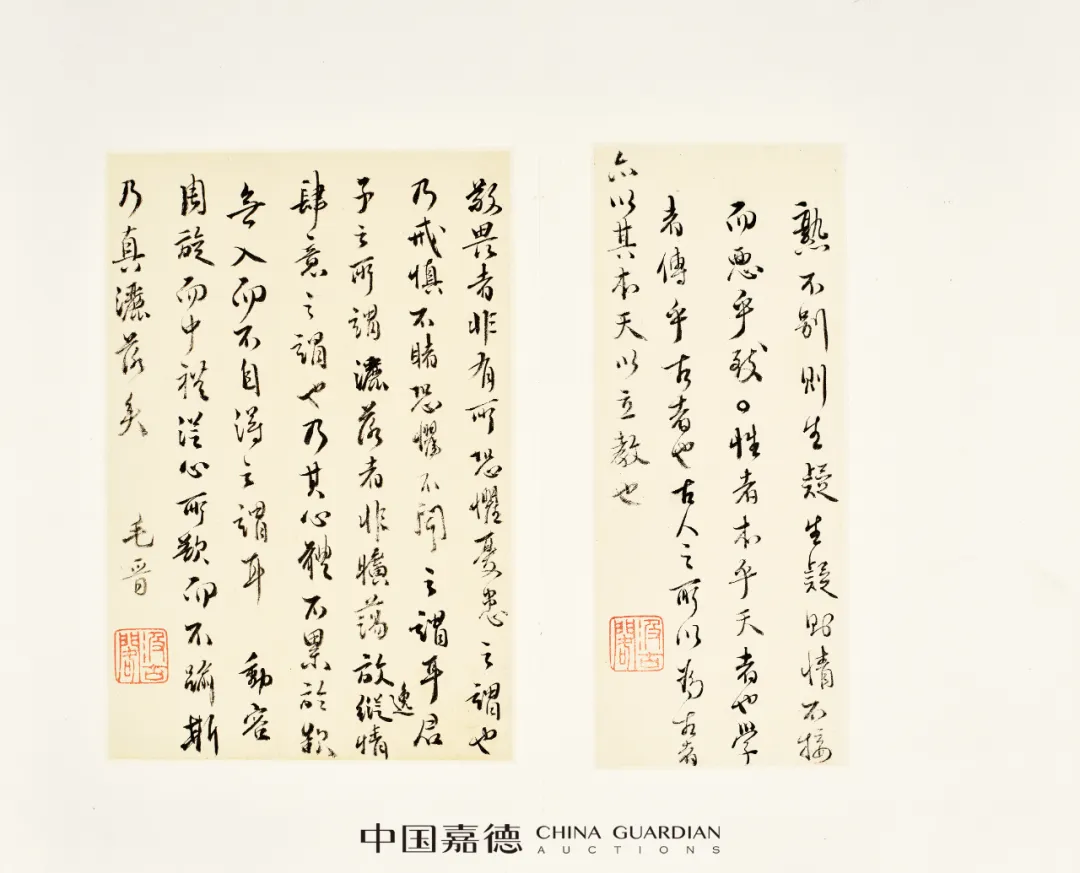 熟不別則生疑生疑則情不接
而惡乎致。性者本乎天者也學
者傳乎古者也古人之所以為古者
亦以其本天以立教也
汲古閣
敬畏者非有所恐懼憂患之謂也
乃戒慎不睹恐懼不聞之謂耳君
子之所謂灑落者非曠蕩放縱情
逸
肆意之謂也乃其心體不累於欲
無入而不自得之謂耳 動容
周旋而中禮從心所欲而不踰斯
乃真灑落矣
毛晉
汲古閣
中国嘉德 CHINA GUARDIAN
AUCTIONS